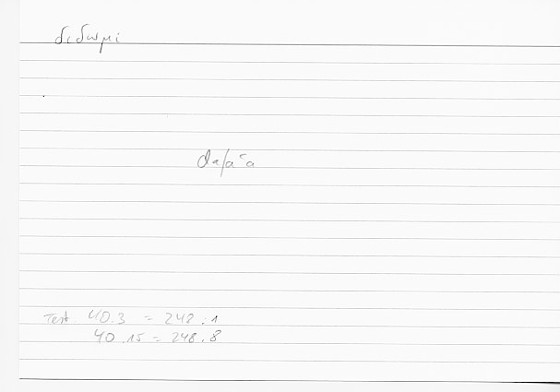 διδωμι
Test. 40.3 = 242:1
40.15 = 248.8